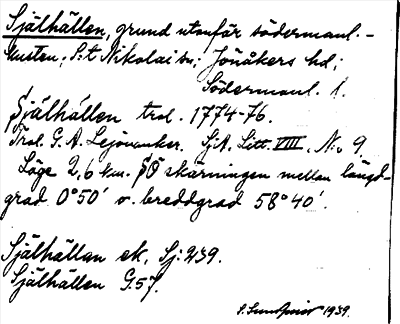 Själhällen, grund utanför södermanl.-
kusten; S:t Nikolai sn; Jönåkers hd;
Södermanl. l.
Själhällen trol. 1774-76.
Trol. G. A. Lejonanker. SjA. Litt. VIII. No 9.
Läge 2,6 km. SO skärningen mellan längd-
grad 0°50' o. breddgrad 58°40'.
Själhällan ek. Sj: 239.
Själhällen G.57.
1939.